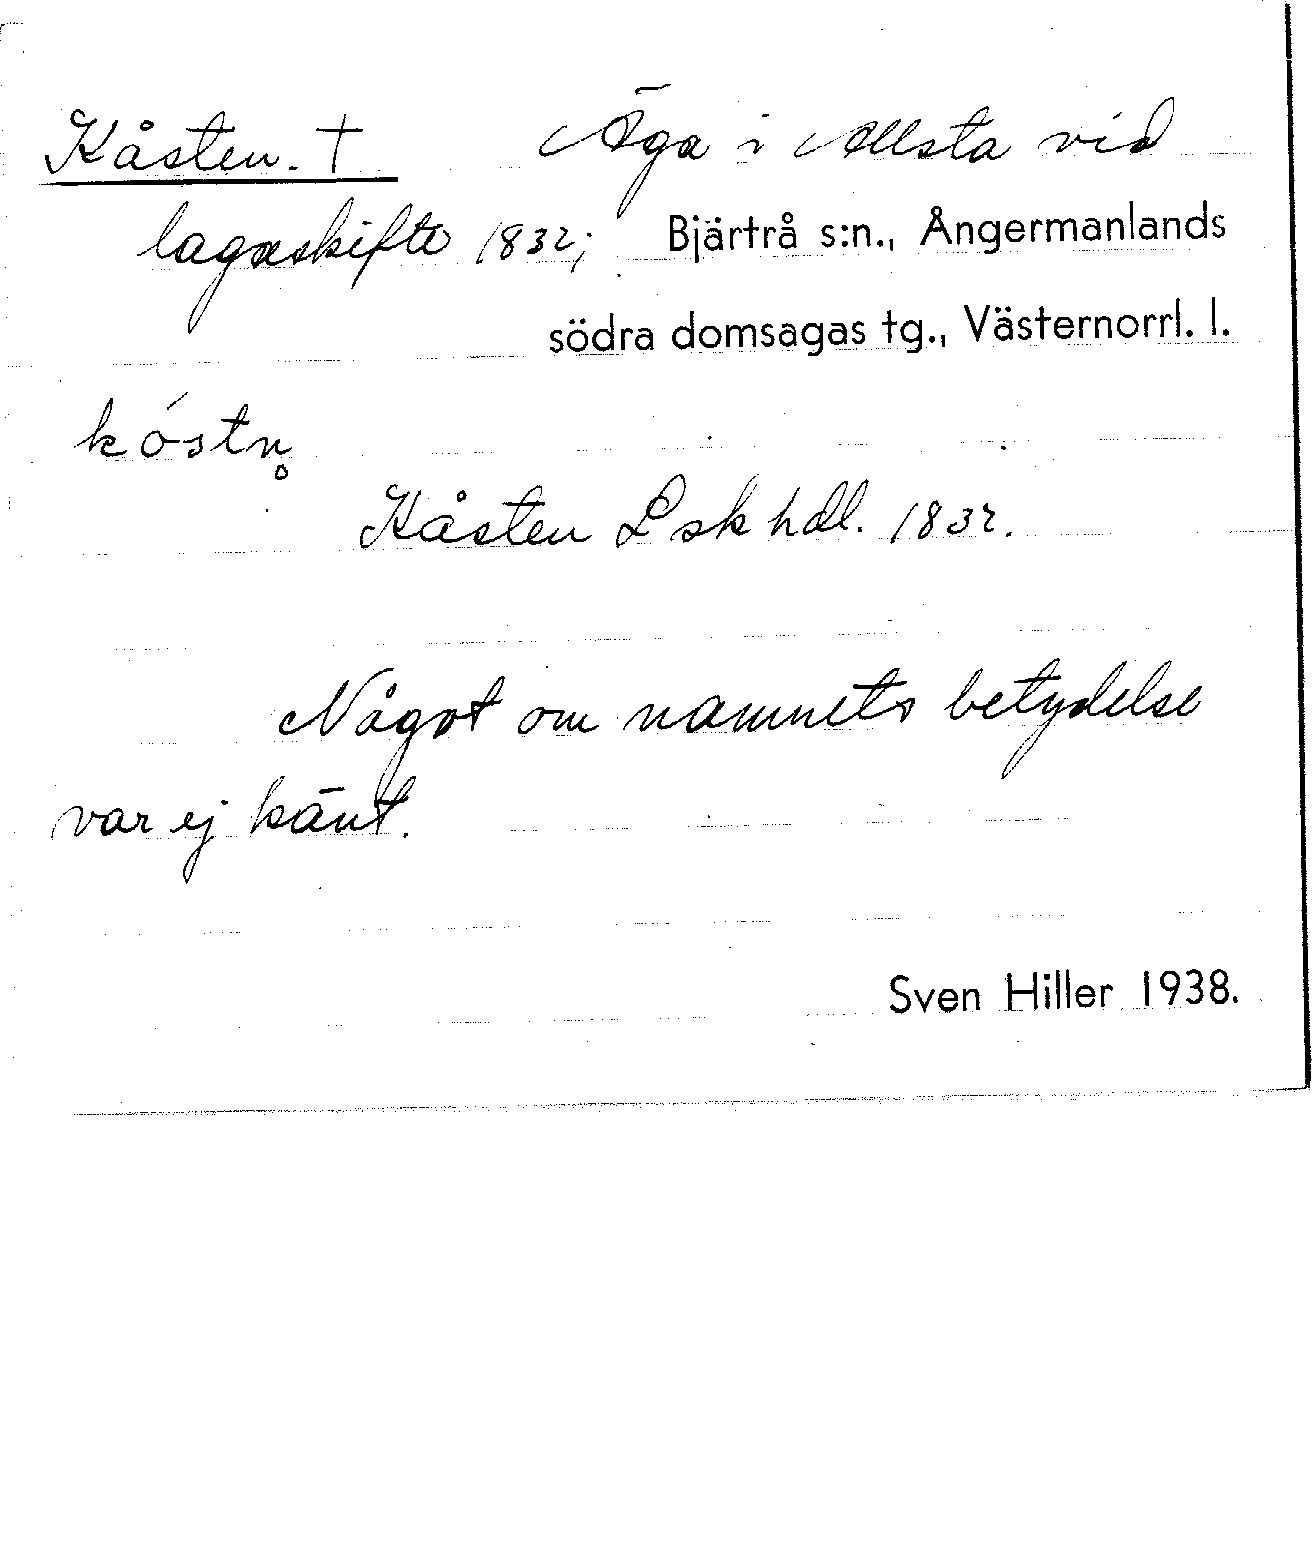 Kåsten. † Äga i Allsta vid
lagaskifte 1832; Bjärtrå s:n., Ångermanlands
södra domsagas tg., Västernorrl. l.
kóstn̥
Kåsten L sk hdl. 1832.
Något om namnets betydelse
var ej känt.
Sven Hiller 1938.